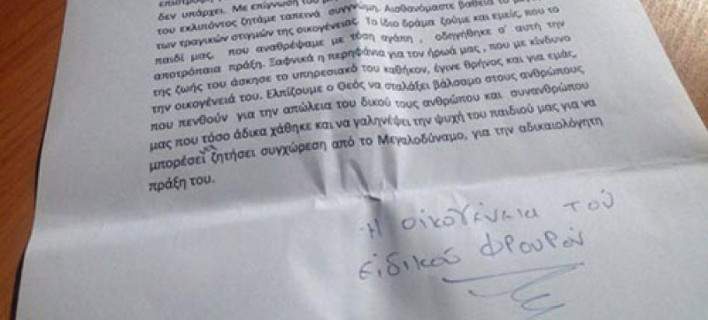 δεν υπάρχει. Με επίγνωση του
του εκλιπόντος ζητάμε ταπεινά συγγνώμη. Αισθανόμαστε βαθειά το
των τραγικών στιγμών της οικογένειας. Το ίδιο δράμα ζούμε και εμείς, που το
παιδί μας, που αναθρέψαμε με τόση αγάπη, οδηγήθηκε σ' αυτή την
αποτρόπαια πράξη. Ξαφνικά η περηφάνια για τον ήρωά μας, που με κίνδυνο
της ζωής του άσκησε το υπηρεσιακό του καθήκον, έγινε θρήνος και για εμάς,
την οικογένειά του. Ελπίζουμε ο Θεός να σταλάξει βάλσαμο στους ανθρώπους
που πενθούν για την απώλεια του δικού τους ανθρώπου και συνανθρώπου
μας που τόσο άδικα χάθηκε και να γαληνέψει την ψυχή του παιδιού μας για να
μπορέσει να ζητήσει συγχώρεση από το Μεγαλοδύναμο, για την αδικαιολόγητη
πράξη του.
Η οικογένεια του
ειδικού φρουρού